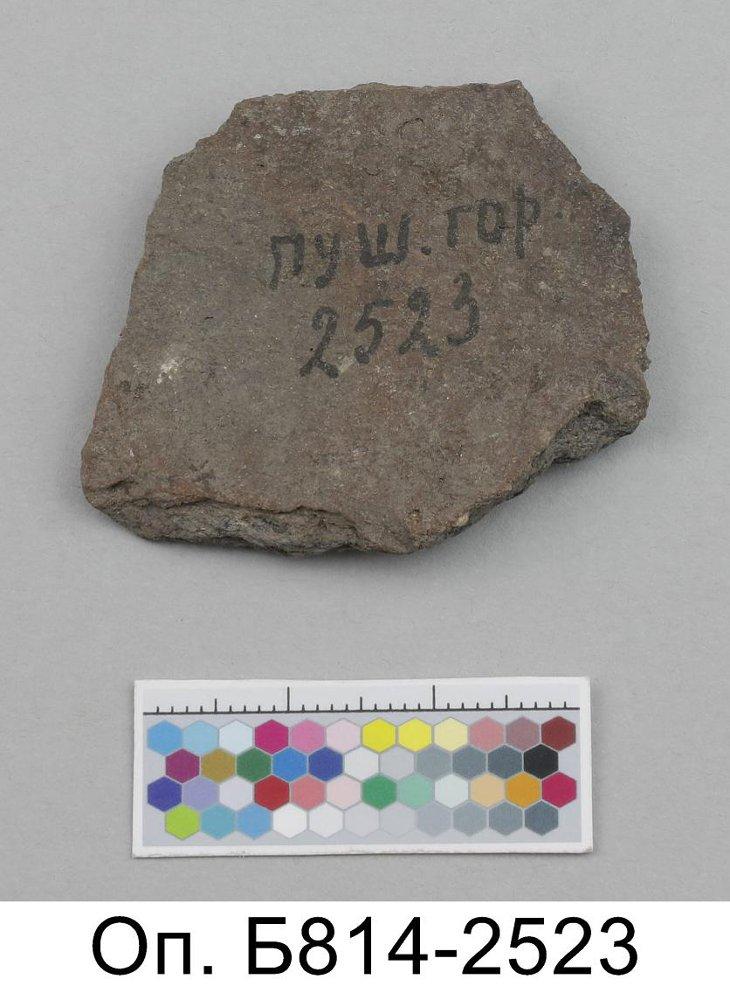 пуш. гор.
2523
Оп. Б814-2523